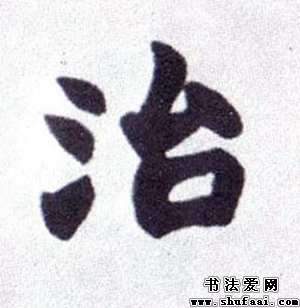 治
书法爱网
www.shufaai.com